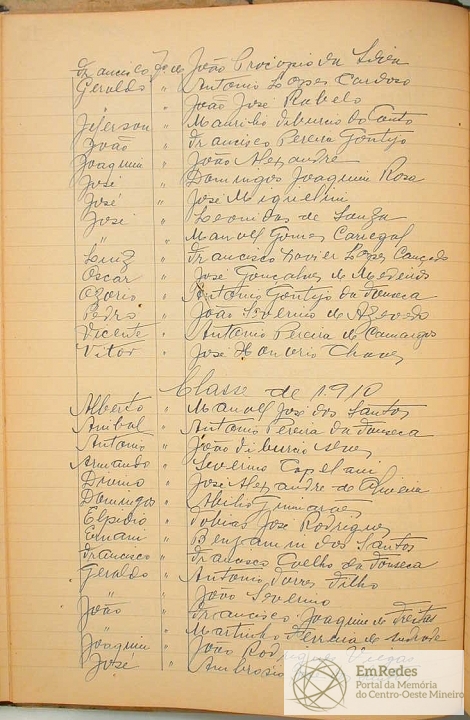 Francisco fo. de João Procopio da Silva
Geraldo " Antonio Lopes Cardoso
" " João José Rabelo
Jeferson " Maurilio Tiburcio do Couto
João " Francisco Pereira Gontijo
Joaquim " João Alexandre
José " Domingos Joaquim Rosa
José " José Miguelini
José " Leonidas de Souza
" " Manoel Gomes
Luiz " Francisco Xavier Lopes Cançado
Oscar " José Gonçalves de Medeiros
Ozorio " Antonio Gontijo da Fonseca
Pedro " João Severino de Azevedo
Vicente " Antonio Pereira de Camargos
Vitor " José Honorio Chaves
Classe de 1910
Alberto " Manoel José dos Santos
Anibal " Antonio Pereira da Fonseca
Antonio " João Tiburcio
Armando " Severino
" José Alexandre de Oliveira
Domingos " Abilio Guimarães
Elpidio " Tobias José Rodrigues
Ernani " Benjamin dos Santos
Francisco " Francisco Coelho da Fonseca
Geraldo " Antonio Torres Filho
" " João Severino
João " Francisco Joaquim de Freitas
" " Martinho Ferreira de Andrade
Joaquim " João Rodrigues
José " Ambrosio
EmRedes
Portal da Memória
do Centro-Oeste Mineiro